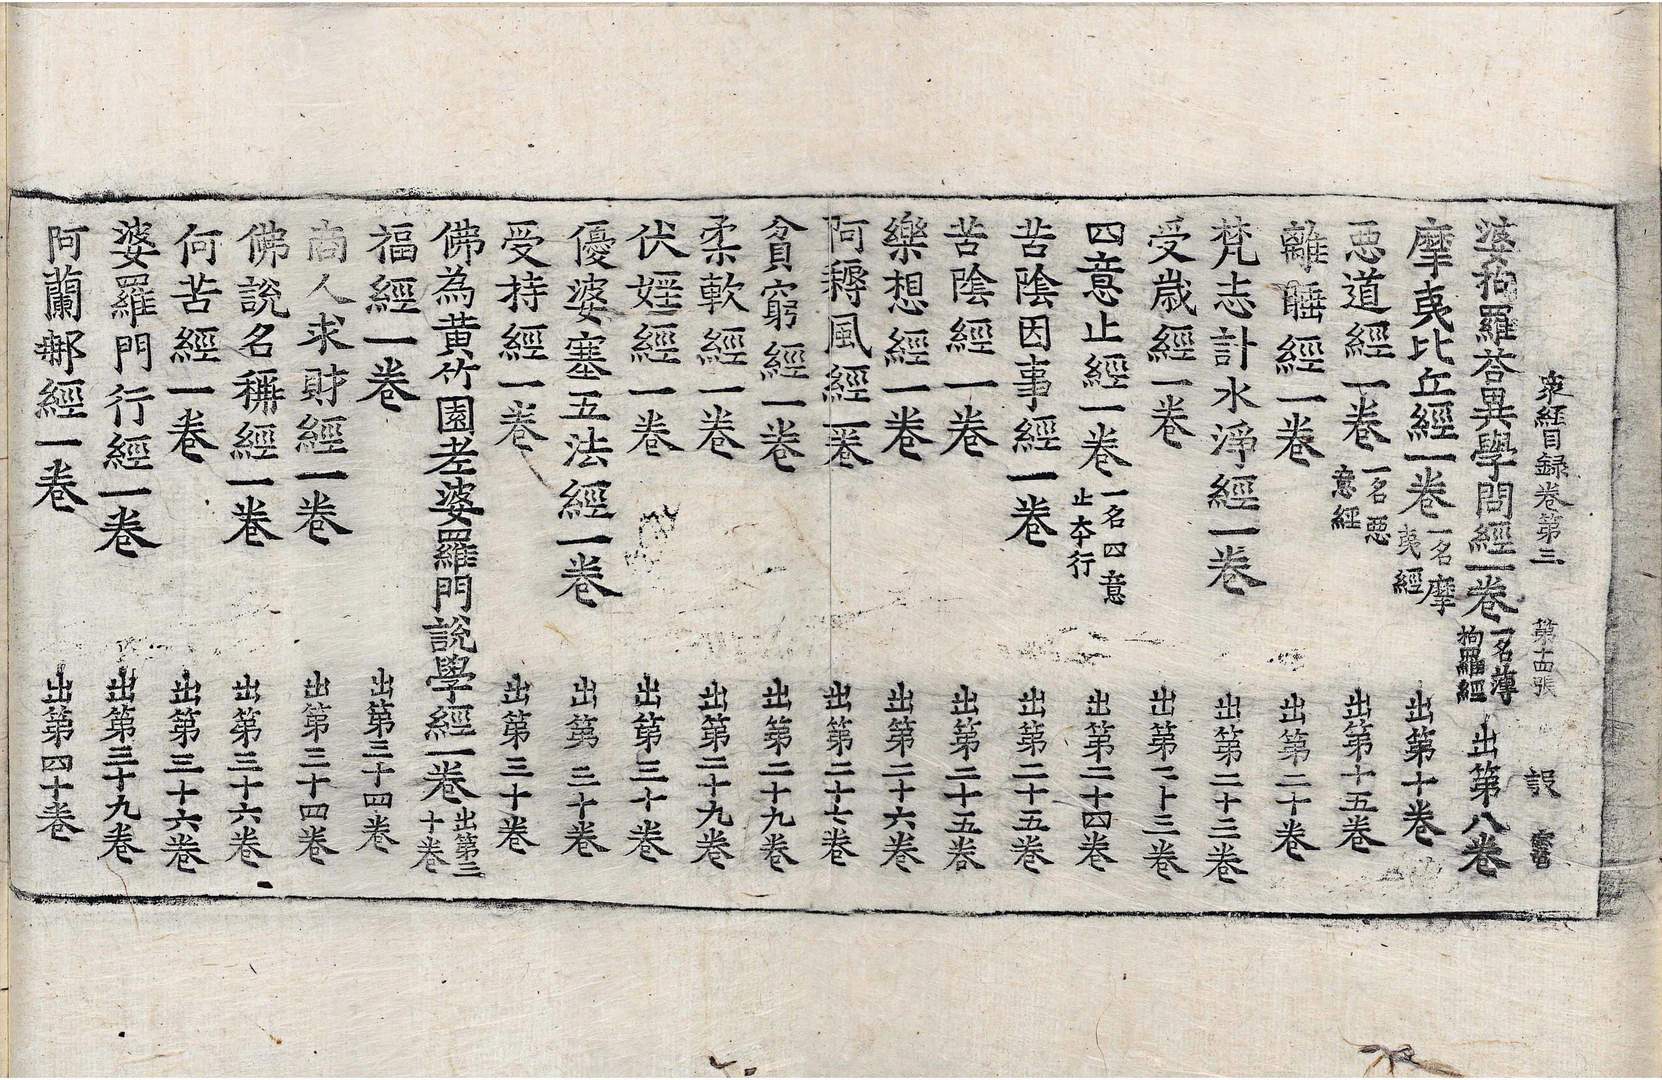 衆經目録卷第三　第十四張　誤
婆拘羅荅異學問經一卷 一名薄拘羅經 出第八卷
摩夷比丘經一卷 一名摩夷經 出第十卷
惡道經一卷 一名惡意經 出第十五卷
離睡經一卷 出第二十卷
梵志計水淨經一卷 出第二十三卷
受歳經一卷 出第二十三卷
四意止經一卷 一名四意止夲行 出第二十四卷
苦陰因事經一卷 出第二十五卷
苦陰經一卷 出第二十五卷
樂想經一卷 出第二十六卷
阿耨風經一卷 出第二十七卷
貧窮經一卷 出第二十九卷
柔軟經一卷 出第二十九卷
伏婬經一卷 出第三十卷
優婆塞五法經一卷 出第三十卷
受持經一卷 出第三十卷
佛為黄竹園老婆羅門説學經一卷 出第三十卷
福經一卷 出第三十四卷
商人求財經一卷 出第三十四卷
佛説名稱經一卷 出第三十六卷
何苦經一卷 出第三十六卷
婆羅門行經一卷 出第三十九卷
阿蘭那經一卷 出第四十卷